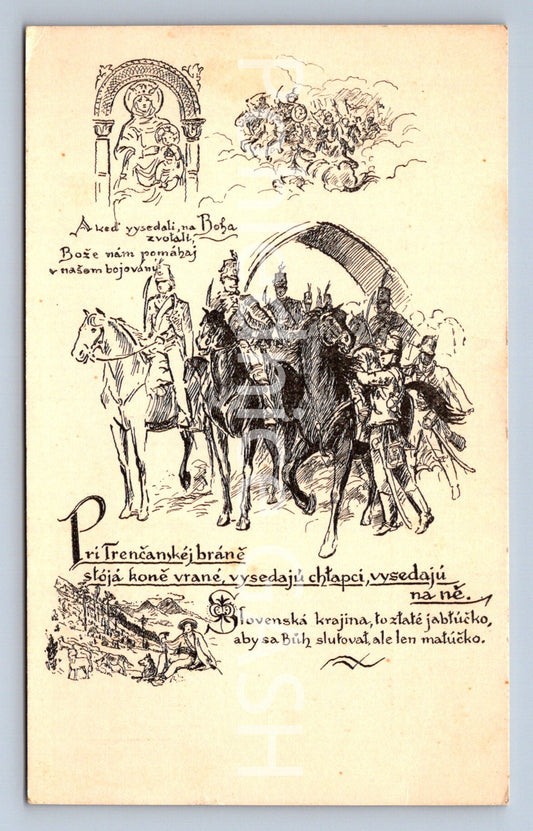 A keď vysedali, na Boha
zvolali,
Bože nám pomáhaj
v našom bojovaní
Pri Trenčanskéj bráně
stojá koně vrané, vysedajú chłapci, vysedajú
na ně.
Slovenská krajina, to złaté jabłúčko,
aby sa Bůh slutovał, ale len małúčko.